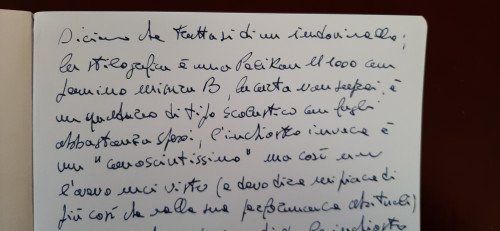 Diciamo che trattasi di un indovinello;
la stilografica è una Pelikan M 1000 con
pennino misura B, la carta non saprei, è
un quaderno di tipo scolastico con fogli
abbastanza spessi, l'inchiostro invece è
un "conoscintissimo" ma così non
l'avevo mai visto (e devo dire mi piace di
più così che nella sua performance abituale)
l'inchiostro